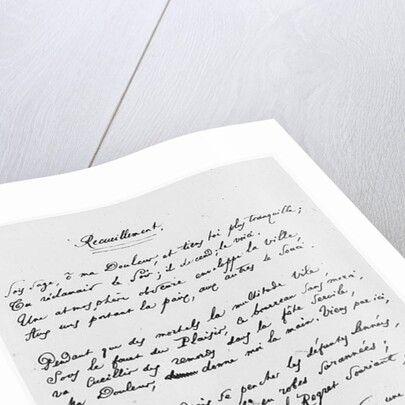 Recueillement.
Sois sage, ô ma Douleur, et tiens toi plus tranquille;
Tu réclamais le Soir; il descend; le voici:
Une atmosphère obscure enveloppe la ville,
Aux uns portant la paix, aux autres le souci.
Pendant que des mortels la multitude vile,
Sous le fouet du Plaisir, ce bourreau sans merci,
va cueillir des remords dans la fête servile,
Ma Douleur, donne moi la main. Viens par ici,
se pencher les défuntes Années,
en robes surannées;
le Regret souriant;
une